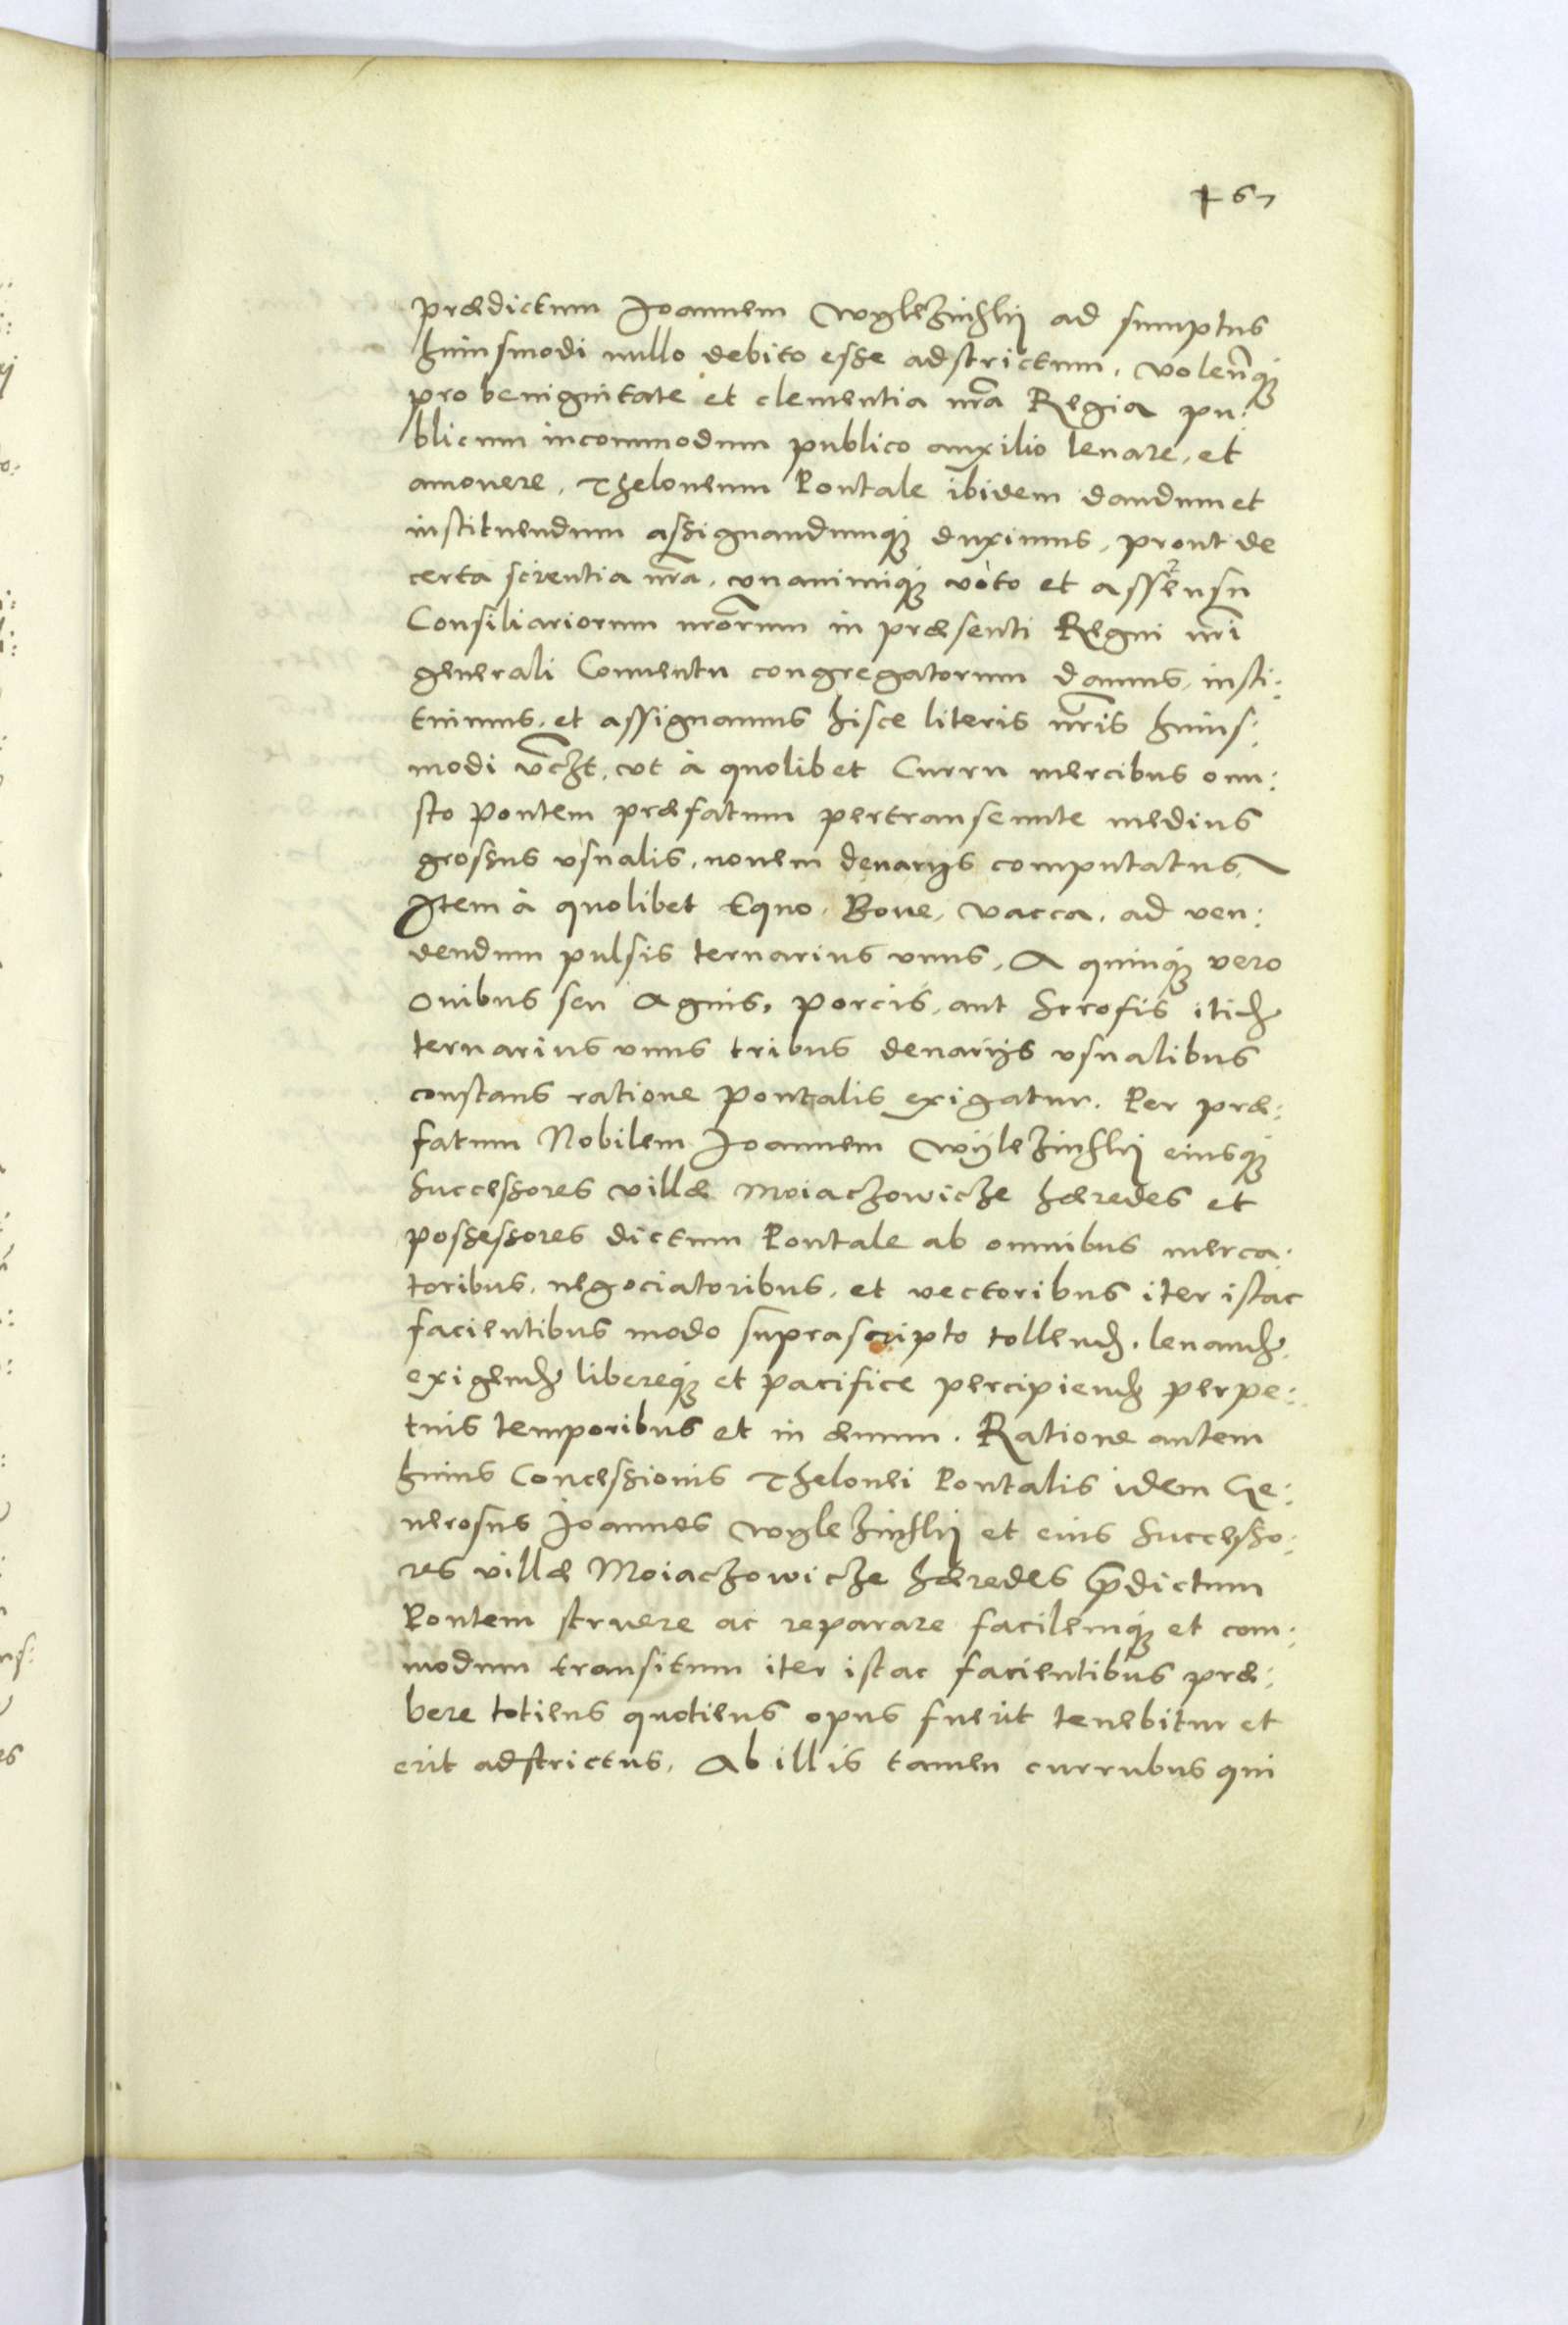 467
prædictum Joannem Wyleżinsky ad sumptus
huiusmodi nullo debito esse adstrictum, volen̄q̃
pro benignitate et clementia nr̃a Regia pu:
blicum incommodum publico auxilio leuare, et
amouere, Theloneum Pontale ibidem dandum et
instituendum assignandumq̃ duximus, prout de
certa scientia nr̃a, vnanimiq̃ voto et assensu
Consiliariorum nr̃orum in præsenti Regni nr̃i
generali Conuentu congregatorum damus, insti:
tuimus, et assignamus hisce literis nr̃is huius:
modi vcz̃t, vt à quolibet Curru mercibus onu:
sto Pontem præfatum pertranseunte medius
grossus vsualis, nouem denarijs computatus,
Item à quolibet Equo, Boue, vacca, ad ven:
dendum pulsis ternarius vnus, A quinq̃ vero
Ouibus seu Agnis, porcis, aut Scrofis itid̃
ternarius vnus tribus denarijs vsualibus
constans ratione Pontalis exigatur. Per præ:
fatum Nobilem Joannem Wÿleżinsky eiusq̃
Successores villæ Moiaczowicze hæredes et
possessores dictum Pontale ab omnibus merca:
toribus, negociatoribus, et vectoribus iter istac
facientibus modo suprascripto tollend̃, leuand̃,
exigend̃ libereq̃ et pacifice percipiend̃ perpe:
tuis temporibus et in æuum. Ratione autem
huius Concessionis Thelonei Pontalis idem Ge:
nerosus Joannes Wyleżinsky et eius Successo:
res villæ Moiaczowicze hæredes p̃dictum
Pontem struere ac reparare facilemq̃ et com:
modum transitum iter istac facientibus præ:
bere totiens quotiens opus fuerit tenebitur et
erit adstrictus, Ab illis tamen curribus qui